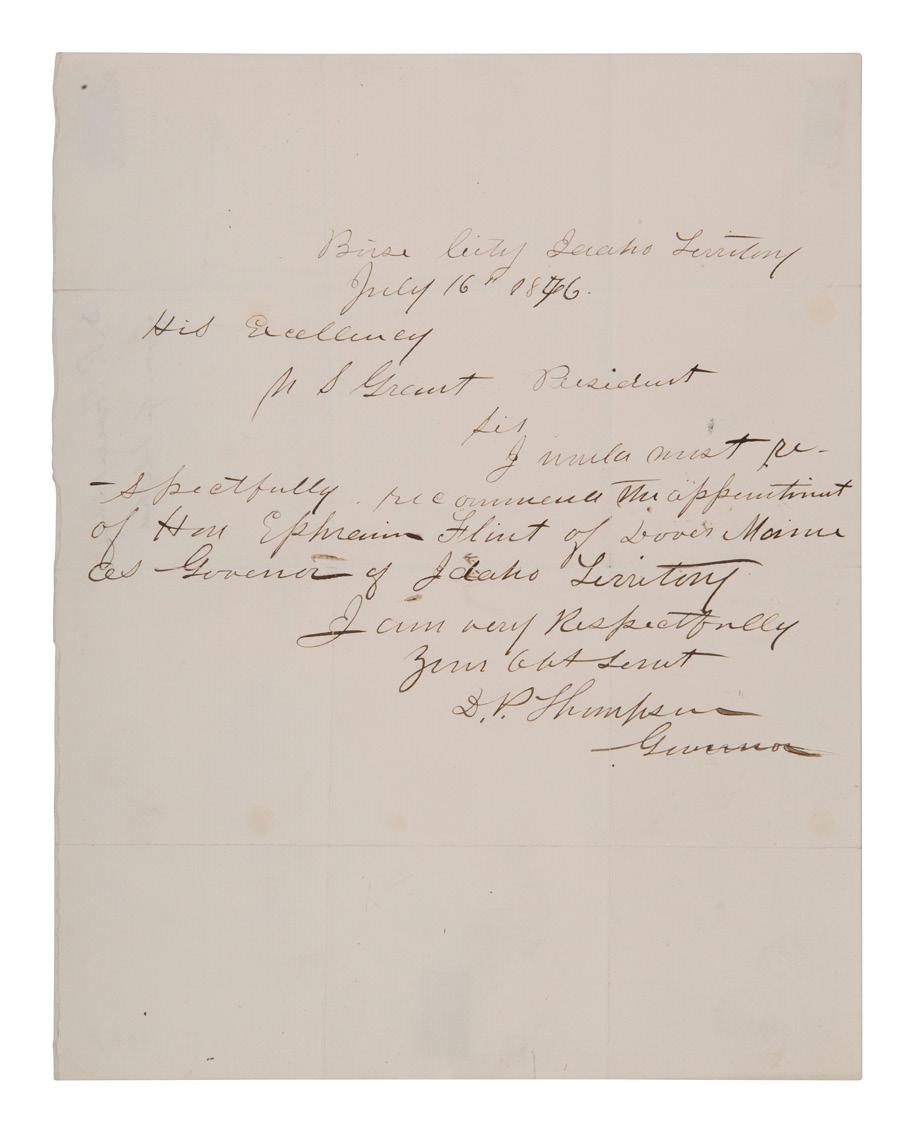 Boise City Idaho Territory
July 16" 1876.
His Excellency
U S Grant President
Sir
I would most re-
-spectfully recommend the appointment
of Hon Ephraim Flint of Dover Maine
as Govenor of Idaho Territory
I am very Respectfully
Your Obt Servt
D. P. Thompson
Governor